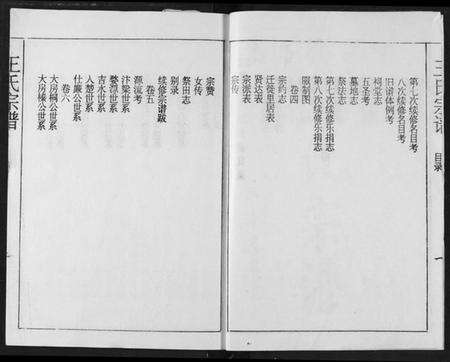 王氏宗谱
目录
一
第七次续修名目考
八次续修名目考
旧谱体例考
祠堂志
五圣考
墓地志
祭法志
第七次续修乐捐志
第八次续修乐捐志
服制图
卷四
宗约志
迁徙里居表
贤达表
宗派表
宗传
宗赞
女传
祭田志
别录
续修宗谱跋
卷五
源流考
汴梁世系
婺源世系
吉水世系
入楚世系
仕廉公世系
卷六
大房桐公世系
大房楱公世系
王氏宗谱